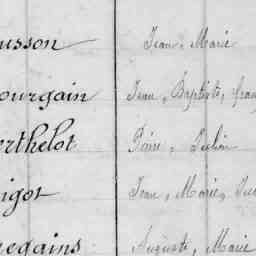 usson Jean, Marie
ourgain Jean, Baptiste, fran
erthelot Pierre, Julien
igot Jean, Marie,
regains Auguste, Marie